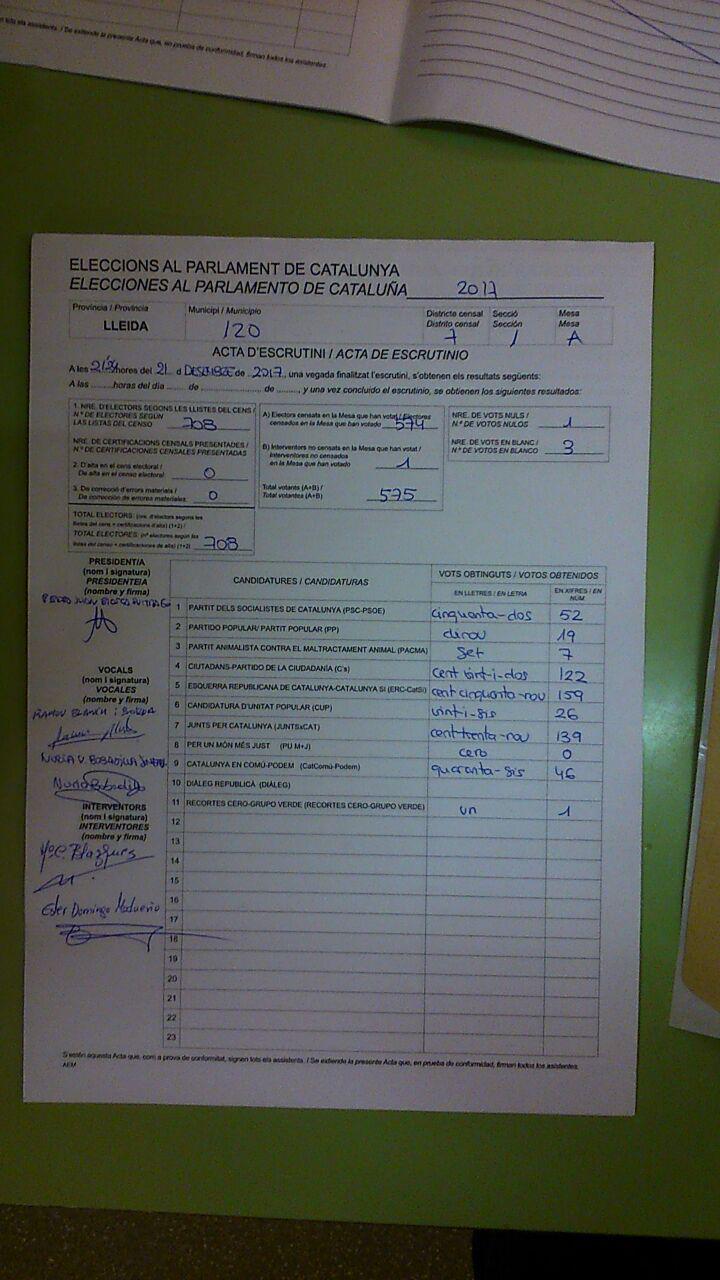 n tots els assistents. / Se extiende la presente Acta que, en prueba de conformidad, firman todos los asistentes.
ELECCIONS AL PARLAMENT DE CATALUNYA
ELECCIONES AL PARLAMENTO DE CATALUÑA 2017
Província / Provincia
LLEIDA
Municipi / Municipio
120
Districte censal
Distrito censal
7
Secció
Sección
1
Mesa
Mesa
A
ACTA D'ESCRUTINI / ACTA DE ESCRUTINIO
A les hores del 21 d DESEMBRE de 2017, una vegada finalitzat l'escrutini, s'obtenen els resultats següents:
A las ........horas del día ...... de .................. de ........, y una vez concluido el escrutinio, se obtienen los siguientes resultados:
1. NRE. D'ELECTORS SEGONS LES LLISTES DEL CENS /
N.º DE ELECTORES SEGÚN
LAS LISTAS DEL CENSO 708
NRE. DE CERTIFICACIONS CENSALS PRESENTADES /
N.º DE CERTIFICACIONES CENSALES PRESENTADAS
2. D'alta en el cens electoral /
De alta en el censo electoral: 0
3. De correcció d'errors materials /
De corrección de errores materiales: 0
TOTAL ELECTORS: (nre. d'electors segons les
llistes del cens + certificacions d'alta) (1+2) /
TOTAL ELECTORES: (nº electores según las
listas del censo + certificaciones de alta) (1+2) 708
A) Electors censats en la Mesa que han votat / Electores
censados en la Mesa que han votado 574
B) Interventors no censats en la Mesa que han votat /
Interventores no censados
en la Mesa que han votado 1
Total votants (A+B) /
Total votantes (A+B) 575
NRE. DE VOTS NULS /
N.º DE VOTOS NULOS 1
NRE. DE VOTS EN BLANC /
N.º DE VOTOS EN BLANCO 3
PRESIDENT/A
(nom i signatura)
PRESIDENTE/A
(nombre y firma)
VOCALS
(nom i signatura)
VOCALES
(nombre y firma)
RAMON BLANCH i
NURIA V. BOBADILLA
Nuria Bobadilla
INTERVENTORS
(nom i signatura)
INTERVENTORES
(nombre y firma)
Mª C. Blazquez
Ester Domingo Madueño
CANDIDATURES / CANDIDATURAS
VOTS OBTINGUTS / VOTOS OBTENIDOS
EN LLETRES / EN LETRA
EN XIFRES / EN NÚM.
1 PARTIT DELS SOCIALISTES DE CATALUNYA (PSC-PSOE) cinquanta-dos 52
2 PARTIDO POPULAR/ PARTIT POPULAR (PP) dinou 19
3 PARTIT ANIMALISTA CONTRA EL MALTRACTAMENT ANIMAL (PACMA) set 7
4 CIUTADANS-PARTIDO DE LA CIUDADANÍA (C's) cent vint-i-dos 122
5 ESQUERRA REPUBLICANA DE CATALUNYA-CATALUNYA SÍ (ERC-CatSí) cent cinquanta-nou 159
6 CANDIDATURA D'UNITAT POPULAR (CUP) vint-i-sis 26
7 JUNTS PER CATALUNYA (JUNTSxCAT) cent trenta-nou 139
8 PER UN MÓN MÉS JUST (PU M+J) cero 0
9 CATALUNYA EN COMÚ-PODEM (CatComú-Podem) quaranta-sis 46
10 DIÀLEG REPUBLICÀ (DIÀLEG)
11 RECORTES CERO-GRUPO VERDE (RECORTES CERO-GRUPO VERDE) un 1
12
13
14
15
16
17
18
19
20
21
22
23
S'estén aquesta Acta que, com a prova de conformitat, signen tots els assistents. / Se extiende la presente Acta que, en prueba de conformidad, firman todos los asistentes.
AEM